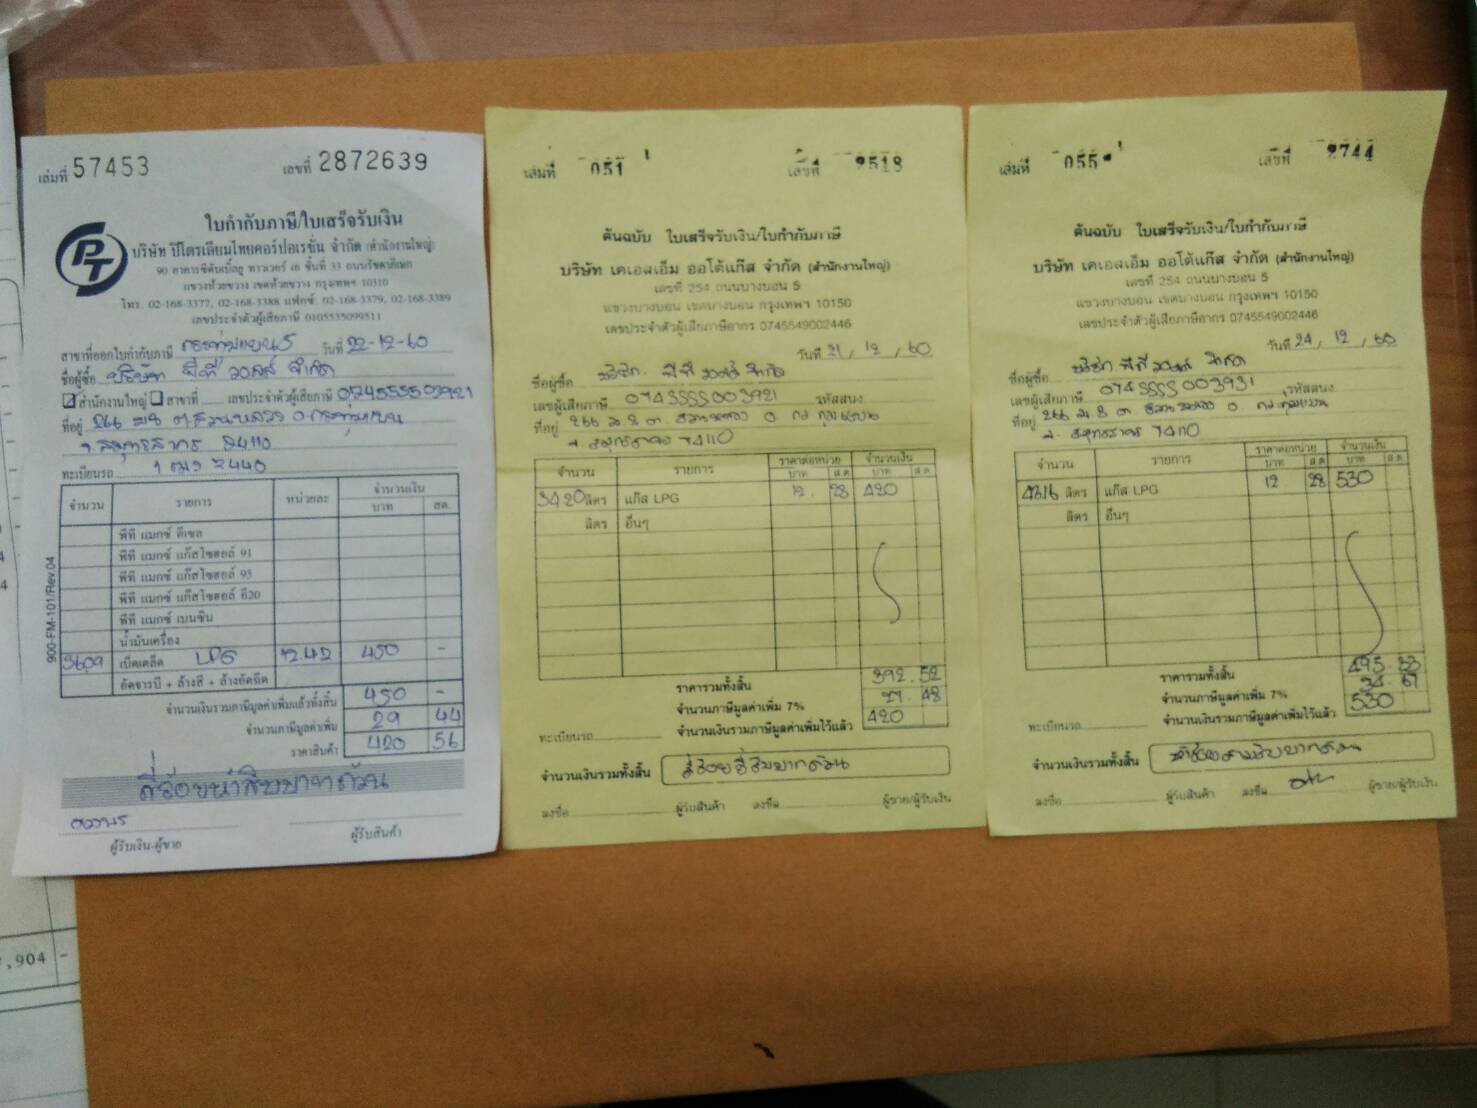 เล่มที่ 57453 เลขที่ 2872639
ใบกำกับภาษี/ใบเสร็จรับเงิน
PT
บริษัท ปิโตรเลียมไทยคอร์ปอเรชั่น จำกัด (สำนักงานใหญ่)
90 อาคารซีดับเบิ้ลยู ทาวเวอร์ เอ ชั้นที่ 33 ถนนรัชดาภิเษก
แขวงห้วยขวาง เขตห้วยขวาง กรุงเทพฯ 10310
โทร. 02-168-3377, 02-168-3388 แฟกซ์. 02-168-3379, 02-168-3389
เลขประจำตัวผู้เสียภาษี 0105535099511
สาขาที่ออกใบกำกับภาษี กระทุ่มแบน 5 วันที่ 22-12-60
ชื่อผู้ซื้อ บริษัท พีที วอลล์ จำกัด
สำนักงานใหญ่ สาขาที่ เลขประจำตัวผู้เสียภาษี 0745555003921
ที่อยู่ 266 ม.8 ต.สวนหลวง อ.กระทุ่มแบน
จ.สมุทรสาคร 74110
ทะเบียนรถ 2440
จำนวน รายการ หน่วยละ จำนวนเงิน
บาท สต.
พีที แมกซ์ ดีเซล
พีที แมกซ์ แก๊สโซฮอล์ 91
พีที แมกซ์ แก๊สโซฮอล์ 95
พีที แมกซ์ แก๊สโซฮอล์ อี20
พีที แมกซ์ เบนซิน
น้ำมันเครื่อง
เบ็ดเตล็ด LPG 12.42 450 -
อัดจารบี + ล้างสี + ล้างอัดฉีด
จำนวนเงินรวมภาษีมูลค่าเพิ่มแล้วทั้งสิ้น 450 -
จำนวนภาษีมูลค่าเพิ่ม 29 44
ราคาสินค้า 420 56
สี่ร้อยห้าสิบบาทถ้วน
ผู้รับเงิน-ผู้ขาย ผู้รับสินค้า
900-FM-101/Rev.04
เล่มที่ 051 เลขที่ 2518
ต้นฉบับ ใบเสร็จรับเงิน/ใบกำกับภาษี
บริษัท เคเอสเอ็ม ออโต้แก๊ส จำกัด (สำนักงานใหญ่)
เลขที่ 254 ถนนบางบอน 5
แขวงบางบอน เขตบางบอน กรุงเทพฯ 10150
เลขประจำตัวผู้เสียภาษีอากร 0745549002446
วันที่ 21 / 12 / 60
ชื่อผู้ซื้อ บริษัท พีที วอลล์ จำกัด
เลขผู้เสียภาษี 0745555003921 รหัสสนง.
ที่อยู่ 266 ม.8 ต.สวนหลวง อ กระทุ่มแบน
จ. สมุทรสาคร 74110
จำนวน รายการ ราคาต่อหน่วย จำนวนเงิน
บาท ส.ต. บาท ส.ต.
34.20 ลิตร แก๊ส LPG 12. 28 420
ลิตร อื่นๆ
ราคารวมทั้งสิ้น 392.52
จำนวนภาษีมูลค่าเพิ่ม 7% 27 48
ทะเบียนรถ จำนวนเงินรวมภาษีมูลค่าเพิ่มไว้แล้ว 420
จำนวนเงินรวมทั้งสิ้น สี่ร้อยยี่สิบบาทถ้วน
ลงชื่อ ผู้รับสินค้า ลงชื่อ ผู้ขาย/ผู้รับเงิน
เล่มที่ 055 เลขที่ 2744
ต้นฉบับ ใบเสร็จรับเงิน/ใบกำกับภาษี
บริษัท เคเอสเอ็ม ออโต้แก๊ส จำกัด (สำนักงานใหญ่)
เลขที่ 254 ถนนบางบอน 5
แขวงบางบอน เขตบางบอน กรุงเทพฯ 10150
เลขประจำตัวผู้เสียภาษีอากร 0745549002446
วันที่ 24 / 12 / 60
ชื่อผู้ซื้อ บริษัท พีที วอลล์ จำกัด
เลขผู้เสียภาษี 0745555003931 รหัสสนง.
ที่อยู่ 266 ม.8 ต. สวนหลวง อ กระทุ่มแบน
จ. สมุทรสาคร 74110
จำนวน รายการ ราคาต่อหน่วย จำนวนเงิน
บาท ส.ต. บาท ส.ต.
43.16 ลิตร แก๊ส LPG 12 28 530
ลิตร อื่นๆ
ราคารวมทั้งสิ้น 495.33
จำนวนภาษีมูลค่าเพิ่ม 7% 34 67
ทะเบียนรถ จำนวนเงินรวมภาษีมูลค่าเพิ่มไว้แล้ว 530
จำนวนเงินรวมทั้งสิ้น ห้าร้อยสามสิบบาทถ้วน
ลงชื่อ ผู้รับสินค้า ลงชื่อ ผู้ขาย/ผู้รับเงิน
,904 -